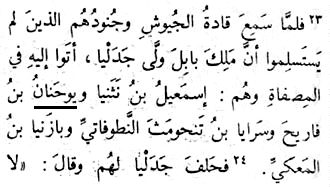 ٢٣ فلمَّا سَمِعَ قادةُ الجُيوشِ وجُنودُهُم الذينَ لم
يَستَسلِموا أنَّ مَلِكَ بابِلَ ولَّى جَدَلْيا ، أتَوا إليهِ في
المِصفاةِ وهُم : إسمَعيلُ بنُ نَثَنيا ويوحَنانُ بنُ
قاريحَ وسَرايا بنُ تَنحومَثَ النَّطوفاتيِّ ويازَنيا بنُ
المَعكيِّ. ٢٤ فحَلفَ جَدَلْيا لهُم وقالَ : «لا